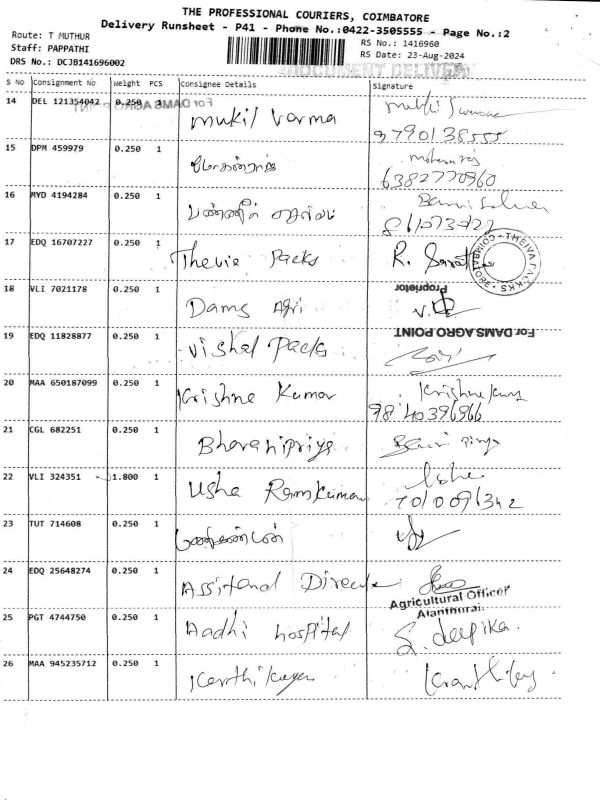 THE PROFESSIONAL COURIERS, COIMBATORE
Delivery Runsheet - P41 - Phone No.:0422-3505555 - Page No.:2
Route: T MUTHUR
RS No.: 1416960
Staff: PAPPATHI
RS Date: 23-Aug-2024
DRS No.: DCJB141696002
DOCUMENT DELIVERY
S No Consignment No Weight PCS Consignee Details Signature
14 DEL 121354042 0.250 1 Mukil Varma
9790138555
15 DPM 459979 0.250 1 மோகன்ராஜ் Mohanraj
6382770960
16 MYD 4194284 0.250 1 பன்னீர் செல்வம்
17 EDQ 16707227 0.250 1 Thevie Packs R.
THEIVA PACKKS COIMBATORE
18 VLI 7021178 0.250 1 Dams Agri
Proprietor
For DAMS AGRO POINT
19 EDQ 11828877 0.250 1 Vishal Packs
20 MAA 650187099 0.250 1 Krishne Kumar
9840396966
21 CGL 682251 0.250 1 Bharanipriya
22 VLI 324351 1.800 1 Usha Ramkumar Usha
7010096342
23 TUT 714608 0.250 1
24 EDQ 25648274 0.250 1 Assitend Directe
Agricultural Officer
Alanthurai.
25 PGT 4744750 0.250 1 Aadhi hospital S. deepika.
26 MAA 945235712 0.250 1